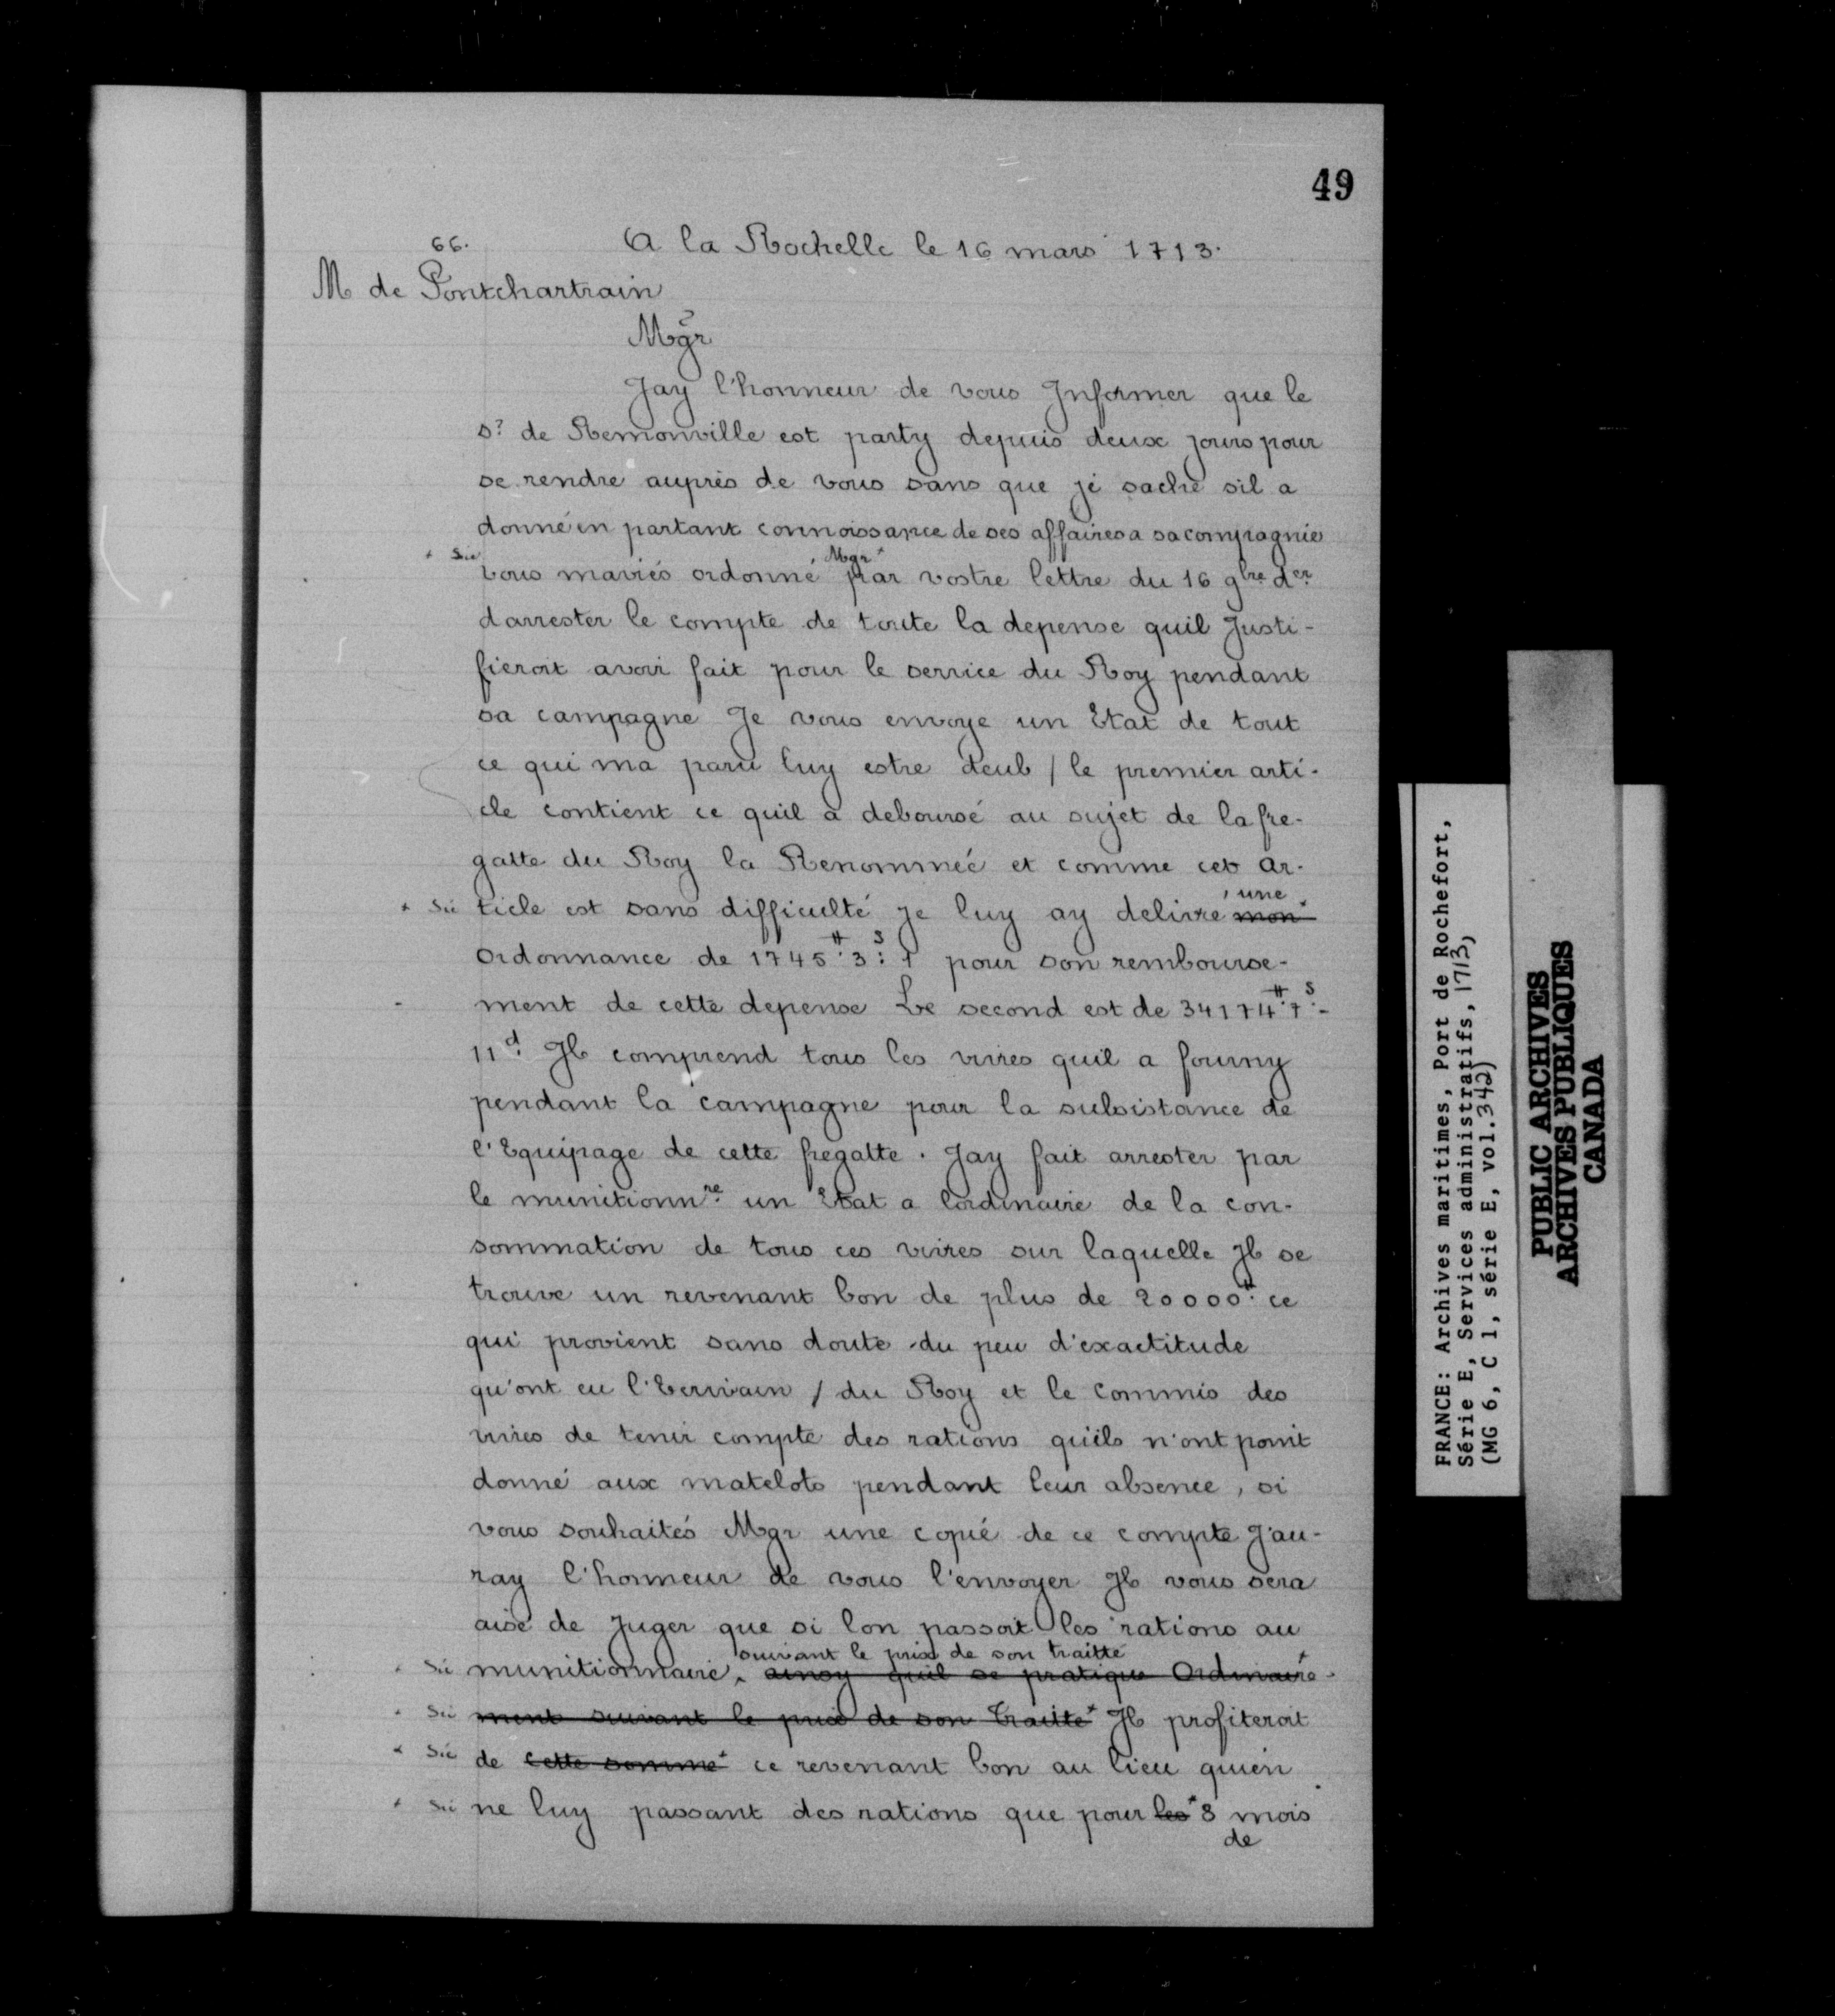 49
66.
A la Rochelle le 16 mars 1713.
M de Pontchartrain
Mgr
Jay l'honneur de vous Informer que le
Sr de Remonville est party depuis deux jours pour
se rendre auprès de vous sans que je sache sil a
donné en partant connoissance de ses affaires a sa compagnie
+ Sic
Mgr +
vous maviés ordonné par vostre lettre du 16 9bre der
darrester le compte de toute la depense quil Justi-
fieroit avoir fait pour le service du Roy pendant
sa campagne Je vous envoye un Etat de tout
ce qui ma paru luy estre deub / le premier arti-
cle contient ce quil a deboursé au sujet de la fre-
gatte du Roy la Renommée et comme cet ar-
une
+ Sic ticle est sans difficulté je luy ay delivré mon +
ordonnance de 1745# 3s: 1 pour son rembourse-
ment de cette depense Le second est de 34174# 7s -
11d. Il comprend tous les vivres quil a fourny
pendant la campagne pour la subsistance de
l'Equipage de cette fregatte. Jay fait arrester par
le munitionnre un Etat a lordinaire de la con-
sommation de tous ces vivres sur laquelle Il se
trouve un revenant bon de plus de 20000# ce
qui provient sans doute du peu d'exactitude
qu'ont eu l'Ecrivain / du Roy et le commis des
vivres de tenir compte des rations qu'ils n'ont point
donné aux matelots pendant leur absence, si
vous souhaités Mgr une copie de ce compte J'au-
ray l'honneur de vous l'envoyer Il vous sera
aisé de Juger que si lon passoit les rations au
suivant le prix de son traitté
+ Sic munitionnaire, ainsy quil se pratique Ordinaire +
+ Sic ment suivant le prix de son traitté + Il profiteroit
+ Sic de cette somme + ce revenant bon au lieu qu'en
+ Sic ne luy passant des rations que pour les + 8 mois
de
FRANCE: Archives maritimes, Port de Rochefort,
Série E, Services administratifs, 1713)
(MG 6, C 1, série E, vol.342)
PUBLIC ARCHIVES
ARCHIVES PUBLIQUES
CANADA